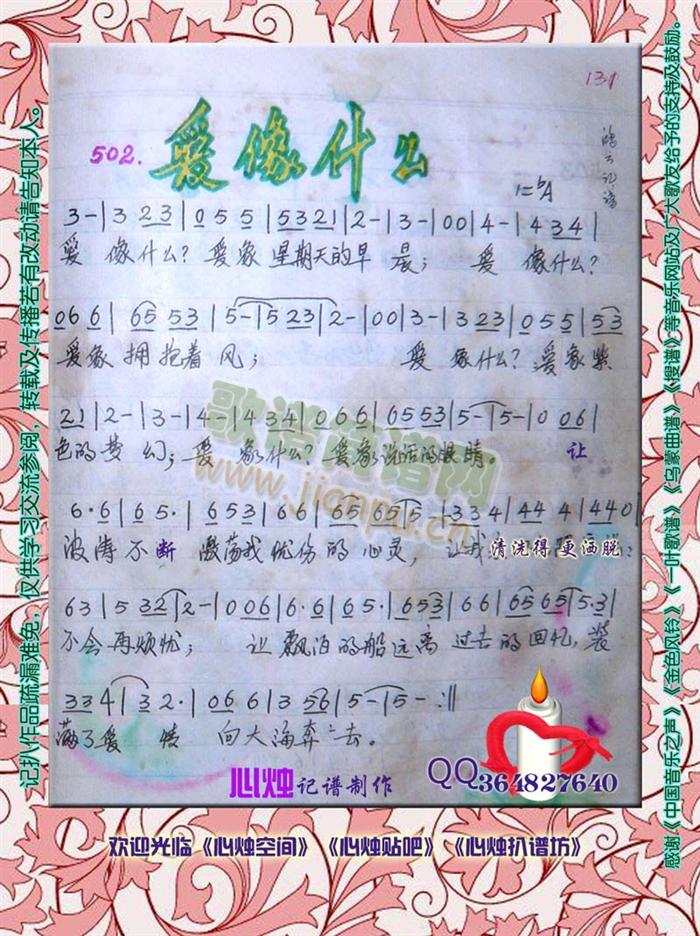 131
502. 爱像什么
1=♭A
3-|3 23|0 5 5|5321|2-|3-|00|4-|4 34|
爱 像什么？爱象 星期天的早 晨； 爱 像什么？
06 6|65 53|5-|5 23|2-|00|3-|3 23|05 5|53
爱象 拥抱着 风； 爱 象什么？爱象紫
21|2-|3-|4-|4 34|06 6|6553|5-|5-|0 06|
色的梦 幻；爱 象什么？爱象说话的眼睛。 让
6·6|65·|653|66|65 65|5-|33 4|44 4|440|
波涛不断 激荡我忧伤的 心灵，让我 清洗得更洒脱
63|5 32|2-|006|6·6|65·|653|66|65 65|5·3|
不会再烦忧； 让 飘泊的船远离 过去的回忆，装
33 4|3 2·|06 6|3 56|5-|5-:||
满了爱 情 向大海奔 去。
心烛记谱制作 QQ364827640
欢迎光临《心烛空间》《心烛贴吧》《心烛扒谱坊》
记扒作品疏漏难免，仅供学习交流参阅，转载及传播若有改动请告知本人。
感谢《中国音乐之声》《金色风铃》《一叶歌谱》《乌蒙曲谱》《搜谱》等音乐网站及广大歌友给予的支持及鼓励。
歌谱简谱网
www.jianpu.cn